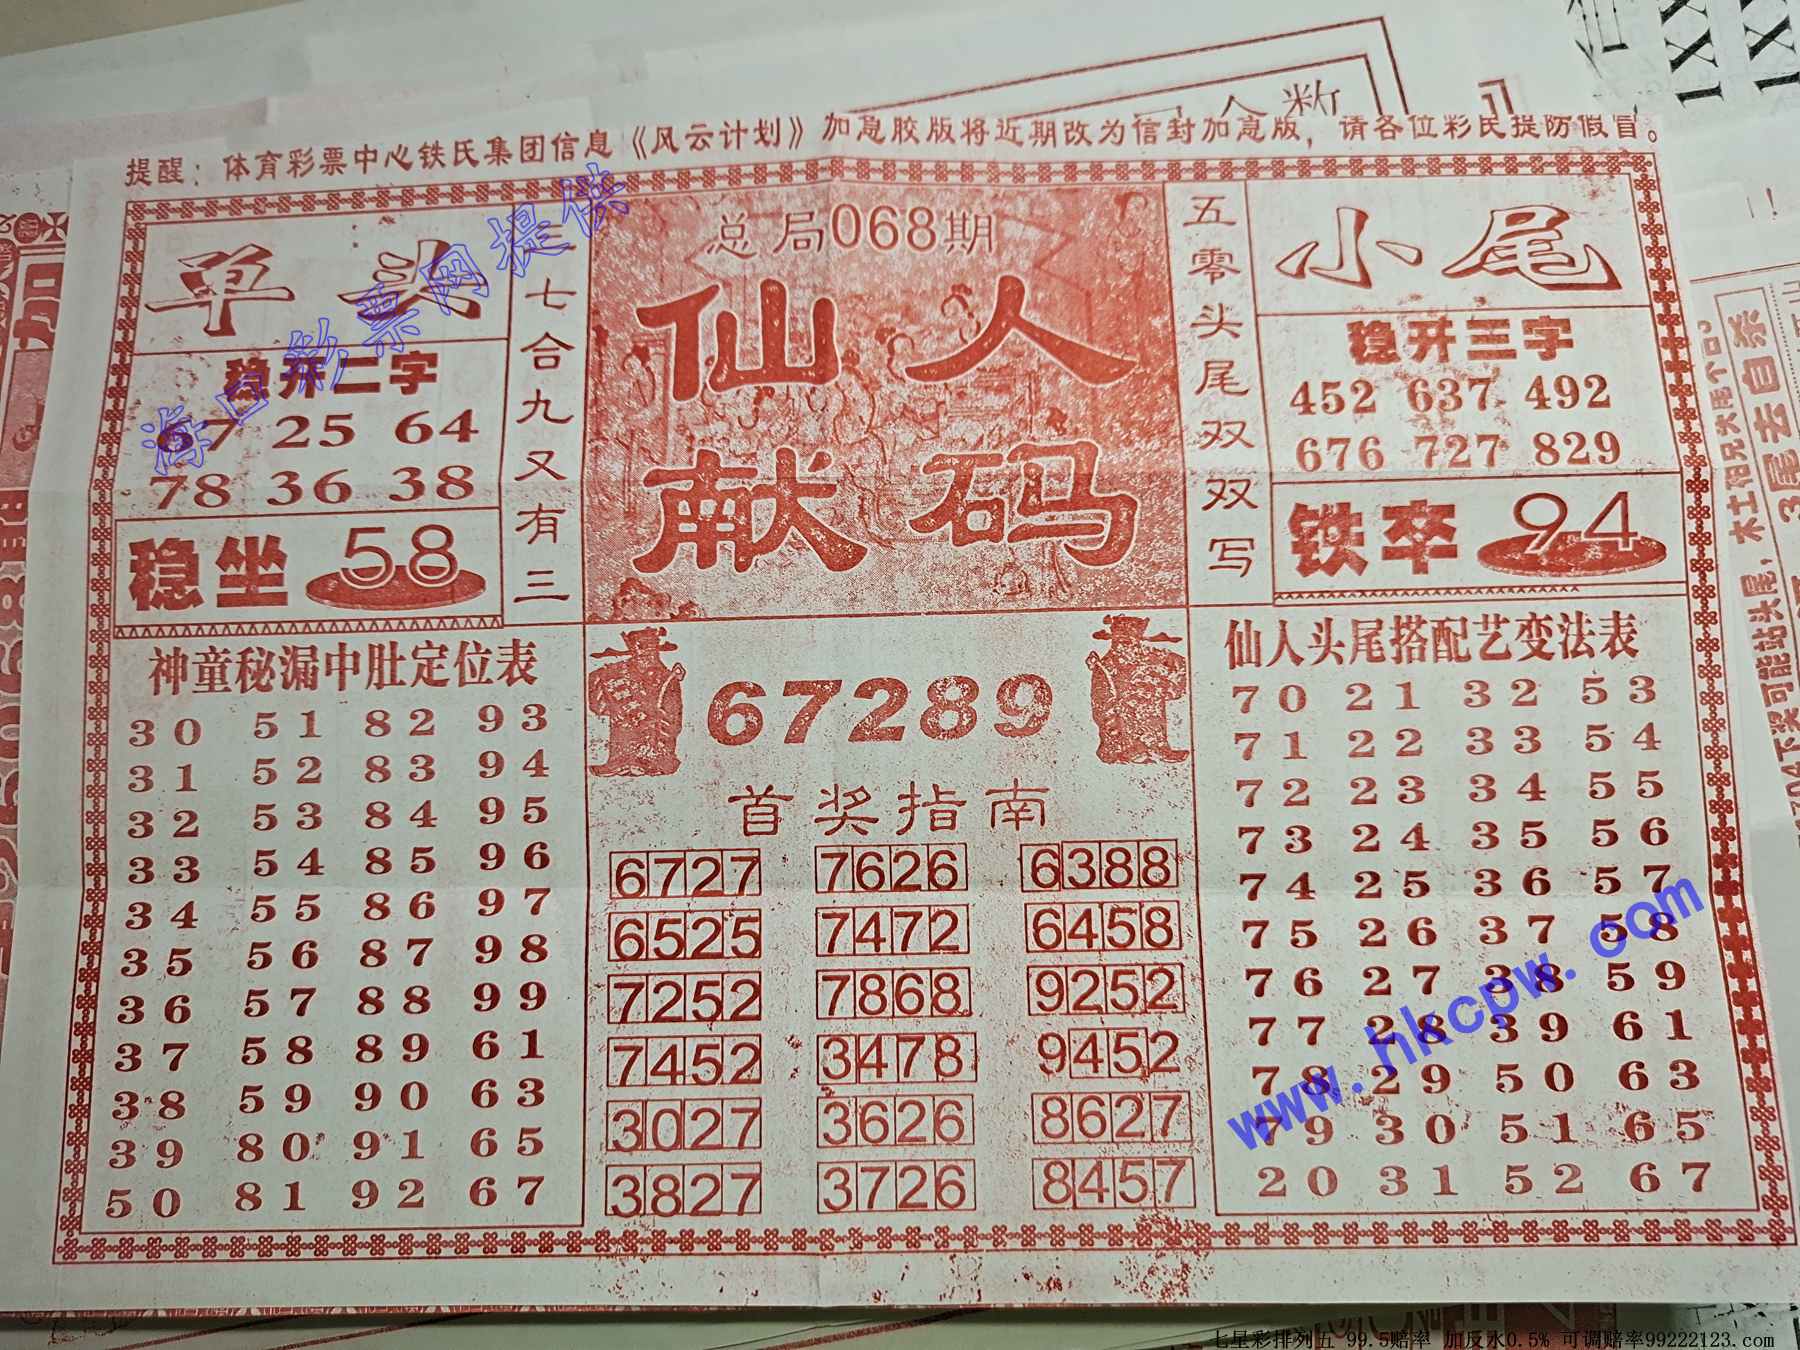 提醒：体育彩票中心铁氏集团信息《风云计划》加急胶版将近期改为信封加急版，请各位彩民提防假冒。
单头
稳开二字
67 25 64
78 36 38
稳坐 58
三七合九又有三
总局068期
仙人
献码
五零头尾双双写
小尾
稳开三字
452 637 492
676 727 829
铁卒 94
神童秘漏中肚定位表
30 51 82 93
31 52 83 94
32 53 84 95
33 54 85 96
34 55 86 97
35 56 87 98
36 57 88 99
37 58 89 61
38 59 90 63
39 80 91 65
50 81 92 67
67289
首奖指南
6727 7626 6388
6525 7472 6458
7252 7868 9252
7452 3478 9452
3027 3626 8627
3827 3726 8457
仙人头尾搭配艺变法表
70 21 32 53
71 22 33 54
72 23 34 55
73 24 35 56
74 25 36 57
75 26 37 58
76 27 38 59
77 28 39 61
78 29 50 63
79 30 51 65
20 31 52 67
海口彩票网提供
www.hkcpw.com
七星彩排列五 99.5赔率 加反水0.5% 可调赔率99222123.com